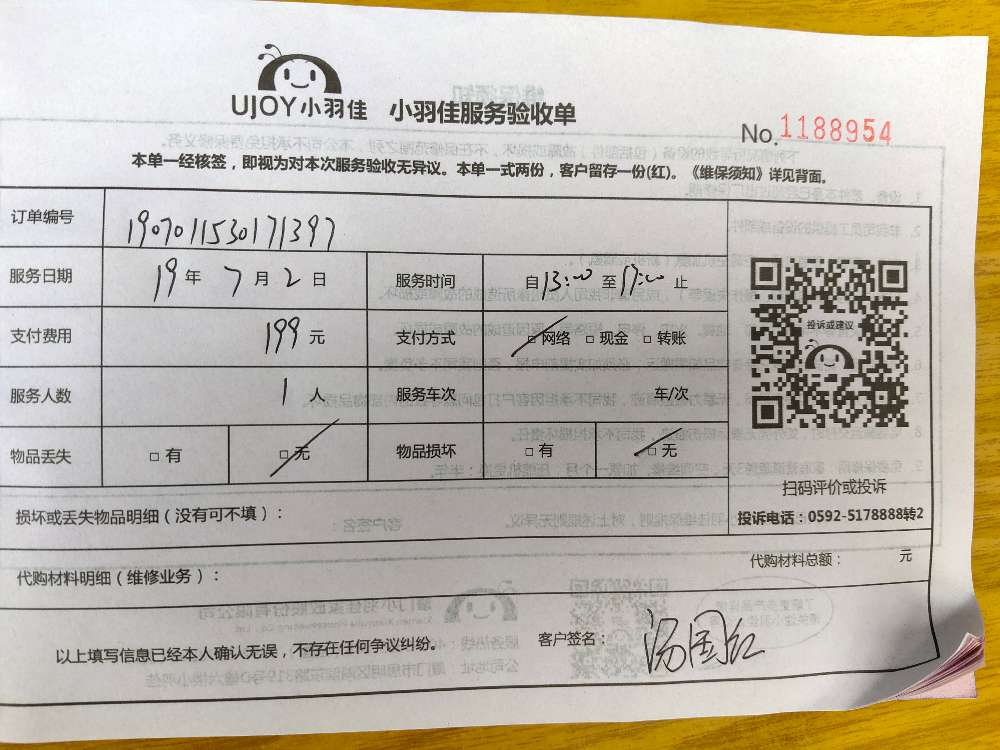 UJOY小羽佳 小羽佳服务验收单
No.1188954
本单一经核签，即视为对本次服务验收无异议。本单一式两份，客户留存一份(红)。《维保须知》详见背面。
订单编号 1907011530171397
服务日期 19年7月2日 服务时间 自13:00至17:00止
支付费用 199元 支付方式 □网络 □现金 □转账
服务人数 1人 服务车次 车/次
物品丢失 □有 □无 物品损坏 □有 □无
投诉或建议
扫码评价或投诉
投诉电话：0592-5178888转2
损坏或丢失物品明细（没有可不填）：
代购材料明细（维修业务）： 代购材料总额： 元
以上填写信息已经本人确认无误，不存在任何争议纠纷。 客户签名：汤国红